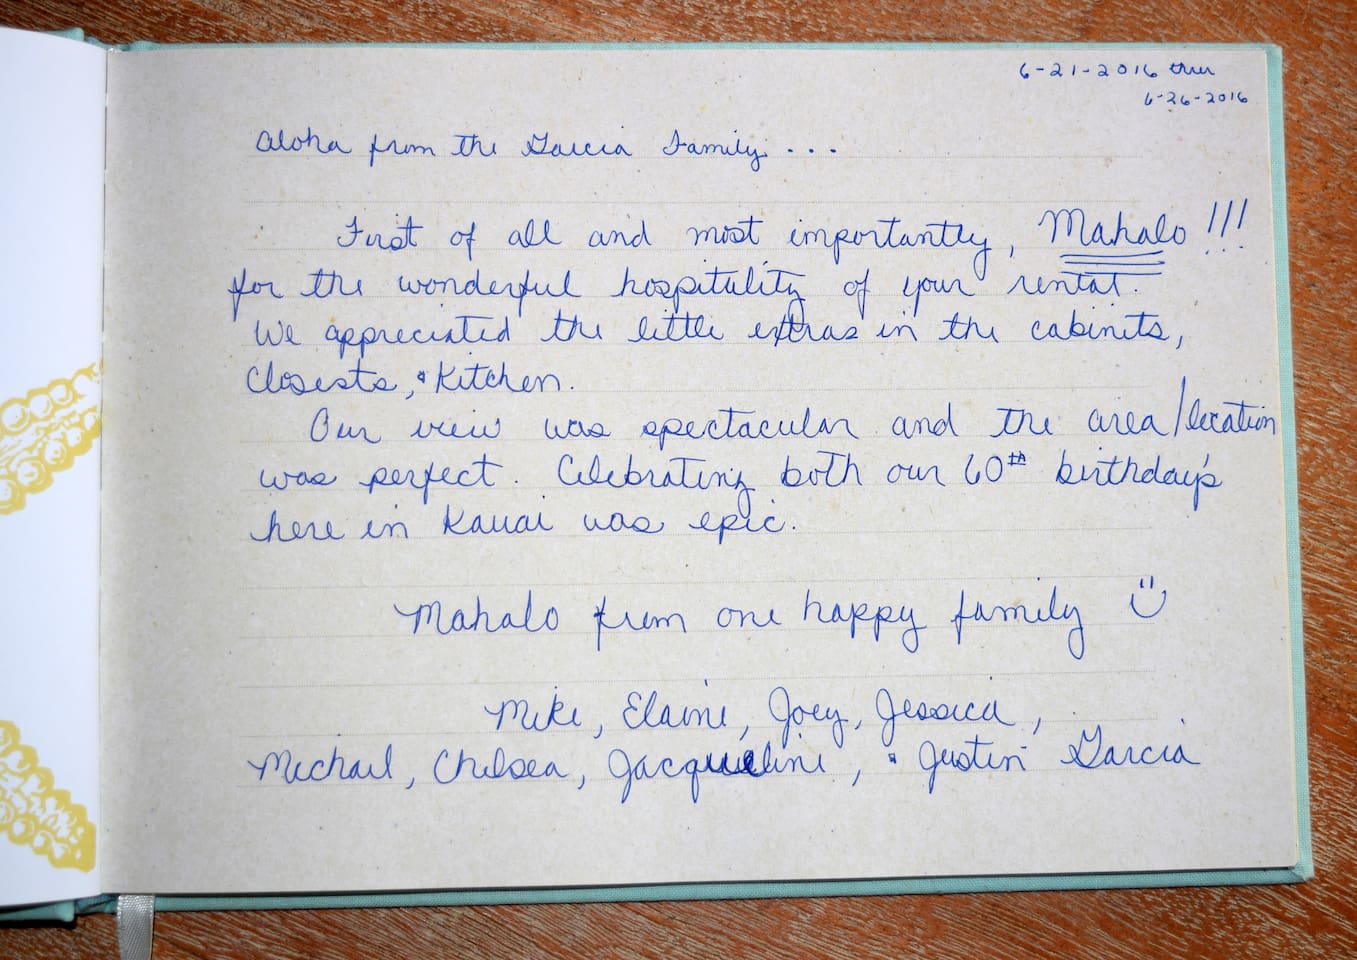 6-21-2016 thru
6-26-2016
Aloha from the Garcia Family...
First of all and most importantly, Mahalo!!!
for the wonderful hospitality of your rental.
We appreciated the little extras in the cabinets,
Closests, & Kitchen.
Our view was spectacular and the area/location
was perfect. Celebrating both our 60th birthday's
here in Kauai was epic.
Mahalo from one happy family
Mike, Elaine, Joey, Jessica,
Michael, Chelsea, Jacqueline, & Justin Garcia